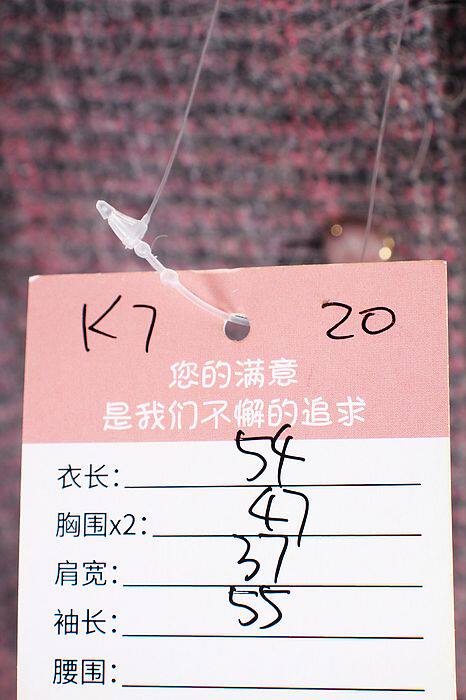 K7 20
您的满意
是我们不懈的追求
衣长: 54
胸围x2: 47
肩宽: 37
袖长: 55
腰围: